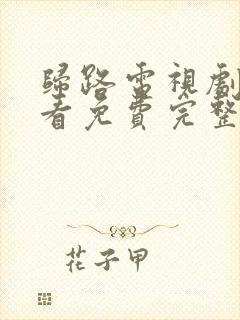 歸路電視劇
看免費完整
花子甲